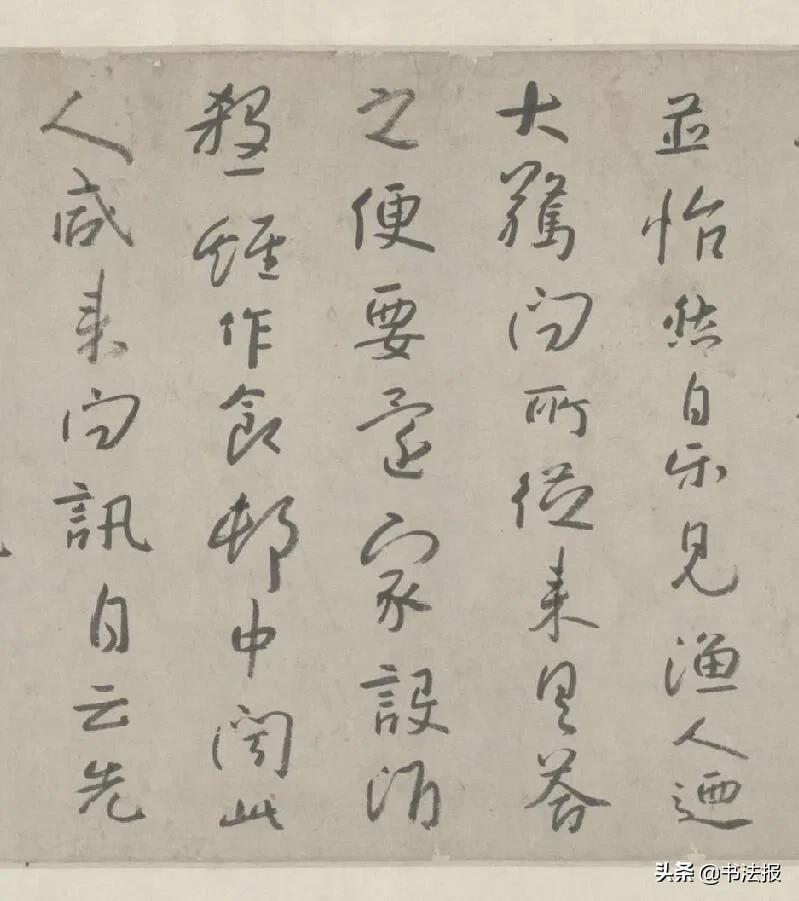 並怡然自樂見漁人迺
大驚問所從來具答
之便要還家設酒
殺雞作食邨中聞此
人咸來問訊自云先
头条 @书法报